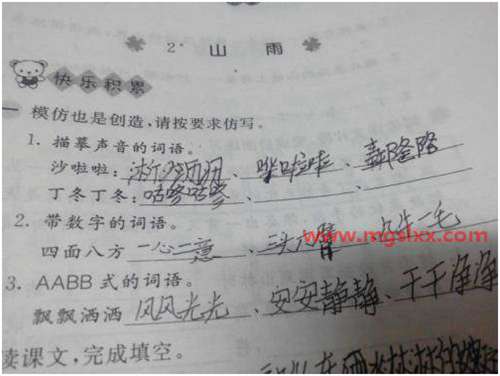 2* 山 雨
快乐积累
一 模仿也是创造,请按要求仿写。
1. 描摹声音的词语。
沙啦啦: 、哗啦啦、轰隆隆
丁冬丁冬:咕咚咕咚、 、
2. 带数字的词语。
四面八方 一心二意、三头六臂、九牛一毛
www.mgslxx.com
3. AABB 式的词语。
飘飘洒洒 风风光光、安安静静、干干净净
读课文,完成填空。